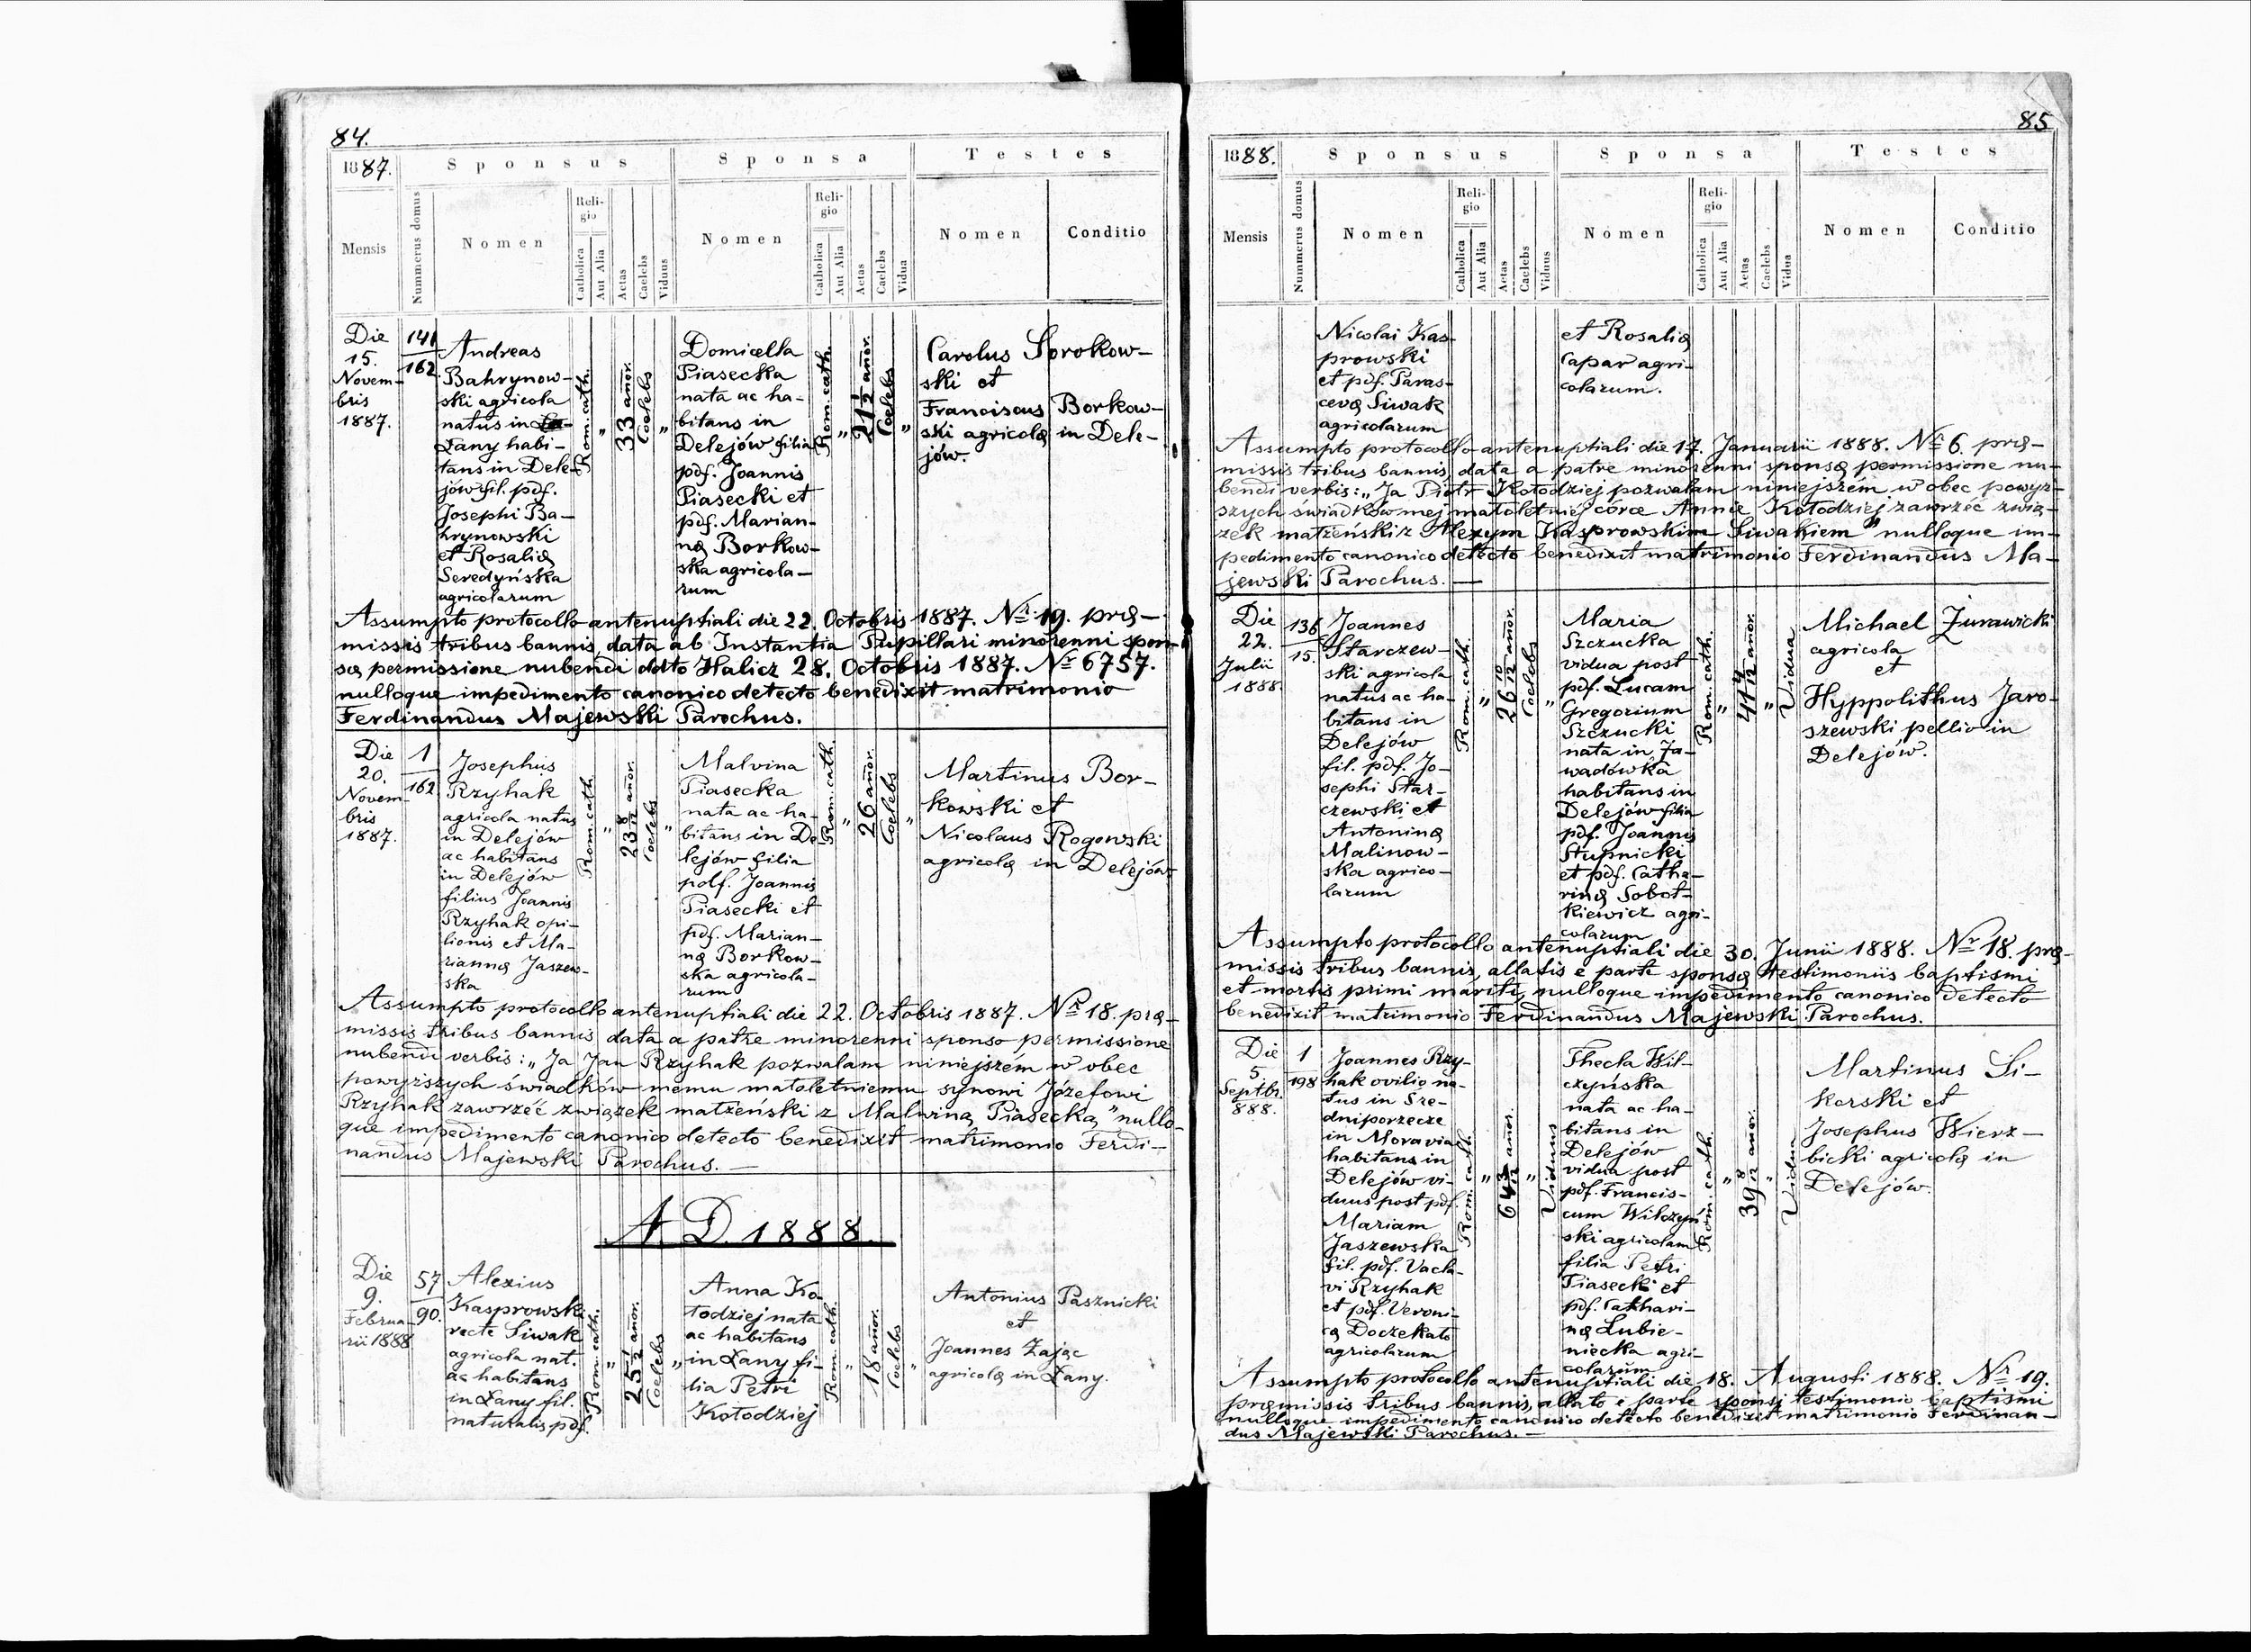 84.
1887.
Sponsus
Sponsa
Testes
Mensis
Nummerus domus
Nomen
Religio
Catholica
Aut Alia
Aetas
Caelebs
Viduus
Nomen
Religio
Catholica
Aut Alia
Aetas
Caelebs
Vidua
Nomen
Conditio
Die
15.
Novem-
bris
1887.
141
162
Andreas
Bahrynow-
ski agricola
natus in
Łany habi-
tans in Dele-
jów fil. pdf.
Josephi Ba-
hrynowski
et Rosalię
Seredyńska
agricolarum
Rom. cath.
"
33 añor.
Coelebs
"
Domicella
Piasecka
nata ac ha-
bitans in
Delejów filia
pdf. Joannis
Piasecki et
pdf. Marian-
nę Borkow-
ska agricola-
rum
Rom. cath.
"
21 1/2 añor.
Coelebs
"
Carolus Sorokow-
ski et
Franciscus Borkow-
ski agricolę in Dele-
jów.
Assumpto protocollo antenuptiali die 22. Octobris 1887. Nr 19. prę-
missis tribus bannis, data ab Instantia Pupillari minorenni spon-
sę permissione nubendi ddto Halicz 28. Octobris 1887. Nr 6757.
nulloque impedimento canonico detecto benedixit matrimonio
Ferdinandus Majewski Parochus.
Die
20.
Novem-
bris
1887.
1
162
Josephus
Rzyhak
agricola natus
in Delejów
ac habitans
in Delejów
filius Joannis
Rzyhak opi-
lionis et Ma-
riannę Jaszew-
ska
Rom. cath.
"
23 8/12 añor.
Coelebs
"
Malvina
Piasecka
nata ac ha-
bitans in De
lejów filia
pdf. Joannis
Piasecki et
pdf. Marian-
nę Borkow-
ska agricola-
rum
Rom. cath.
"
26 añor.
Coelebs
"
Martinus Bor-
kowski et
Nicolaus Rogowski
agricolę in Delejów
Assumpto protocollo antenuptiali die 22. Octobris 1887. Nr 18. prę-
missis tribus bannis, data a patre minorenni sponso permissione
nubendi verbis: „Ja Jan Rzyhak pozwalam niniejszém w obec
powyższych świadków memu małoletniemu synowi Józefowi
Rzyhak zawrzéć związek małżeński z Malwiną Piasecką," nullo-
que impedimento canonico detecto benedixit matrimonio Ferdi-
nandus Majewski Parochus. —
A. D. 1888.
Die
9.
Februa-
rii 1888
57
90.
Alexius
Kasprowski
recte Siwak
agricola nat.
ac habitans
in Łany fil.
naturalis pdf.
Rom. cath.
"
25 1/2 añor.
Coelebs
"
Anna Ko-
łodziej nata
ac habitans
in Łany fi-
lia Petri
Kołodziej
Rom. cath.
"
18 añor.
Coelebs
"
Antonius Pasznicki
et
Joannes Zając
agricolę in Łany.
85
1888.
Sponsus
Sponsa
Testes
Mensis
Nummerus domus
Nomen
Religio
Catholica
Aut Alia
Aetas
Caelebs
Viduus
Nomen
Religio
Catholica
Aut Alia
Aetas
Caelebs
Vidua
Nomen
Conditio
Nicolai Kas-
prowski
et pdf. Paras-
cevę Siwak
agricolarum
et Rosalię
Capar agri-
colarum.
Assumpto protocollo antenuptiali die 17. Januarii 1888. Nr 6. prę-
missis tribus bannis, data a patre minorenni sponsę permissione nu-
bendi verbis: „Ja Piotr Kołodziej pozwalam niniejszém w obec powyż-
szych świadków mej małoletniéj córce Annie Kołodziej zawrzéć zwią-
zek małżeński z Alexym Kasprowskim Siwakiem" nulloque im-
pedimento canonico detecto benedixit matrimonio Ferdinandus Ma-
jewski Parochus. —
Die
22.
Julii
1888
136
15.
Joannes
Starczew-
ski agricola
natus ac ha-
bitans in
Delejów
fil. pdf. Jo-
sephi Star-
czewski et
Antoninę
Malinow-
ska agrico-
larum
Rom. cath.
"
26 10/12 añor.
Coelebs
"
Maria
Szczucka
vidua post
pdf. Lucam
Gregorium
Szczucki
nata in Ja-
wadówka
habitans in
Delejów filia
pdf. Joannis
Stupnicki
et pdf. Catha-
rinę Sobot-
kiewicz agri-
colarum
Rom. cath.
"
41 4/12 añor.
"
Vidua
Michael Żurawicki
agricola
et
Hyppolithus Jaro-
szewski pellio in
Delejów.
Assumpto protocollo antenuptiali die 30. Junii 1888. Nr 18. prę-
missis tribus bannis, allatis e parte sponsę testimoniis baptismi
et mortis primi mariti, nulloque impedimento canonico detecto
benedixit matrimonio Ferdinandus Majewski Parochus.
Die
5.
Septbr.
888.
1
198
Joannes Rzy-
hak ovilio na-
tus in Sre-
dniporzecze
in Moravia
habitans in
Delejów vi-
duus post pdf.
Mariam
Jaszewska
fil. pdf. Vacla-
vi Rzyhak
et pdf. Veroni-
cę Doczekało
agricolarum
Rom. cath.
"
64 3/12 añor.
"
Viduus
Thecla Wil-
czyńska
nata ac ha-
bitans in
Delejów
vidua post
pdf. Francis-
cum Wilczyń
ski agricolam
filia Petri
Piasecki et
pdf. Cathari-
nę Lubie-
niecka agri-
colarum
Rom. cath.
"
39 8/12 añor.
"
Vidua
Martinus Si-
korski et
Josephus Wierz-
bicki agricolę in
Delejów.
Assumpto protocollo antenuptiali die 18. Augusti 1888. Nr 19.
pręmissis tribus bannis, allato e parte sponsi testimonio baptismi
nulloque impedimento canonico detecto benedixit matrimonio Ferdinan-
dus Majewski Parochus. —